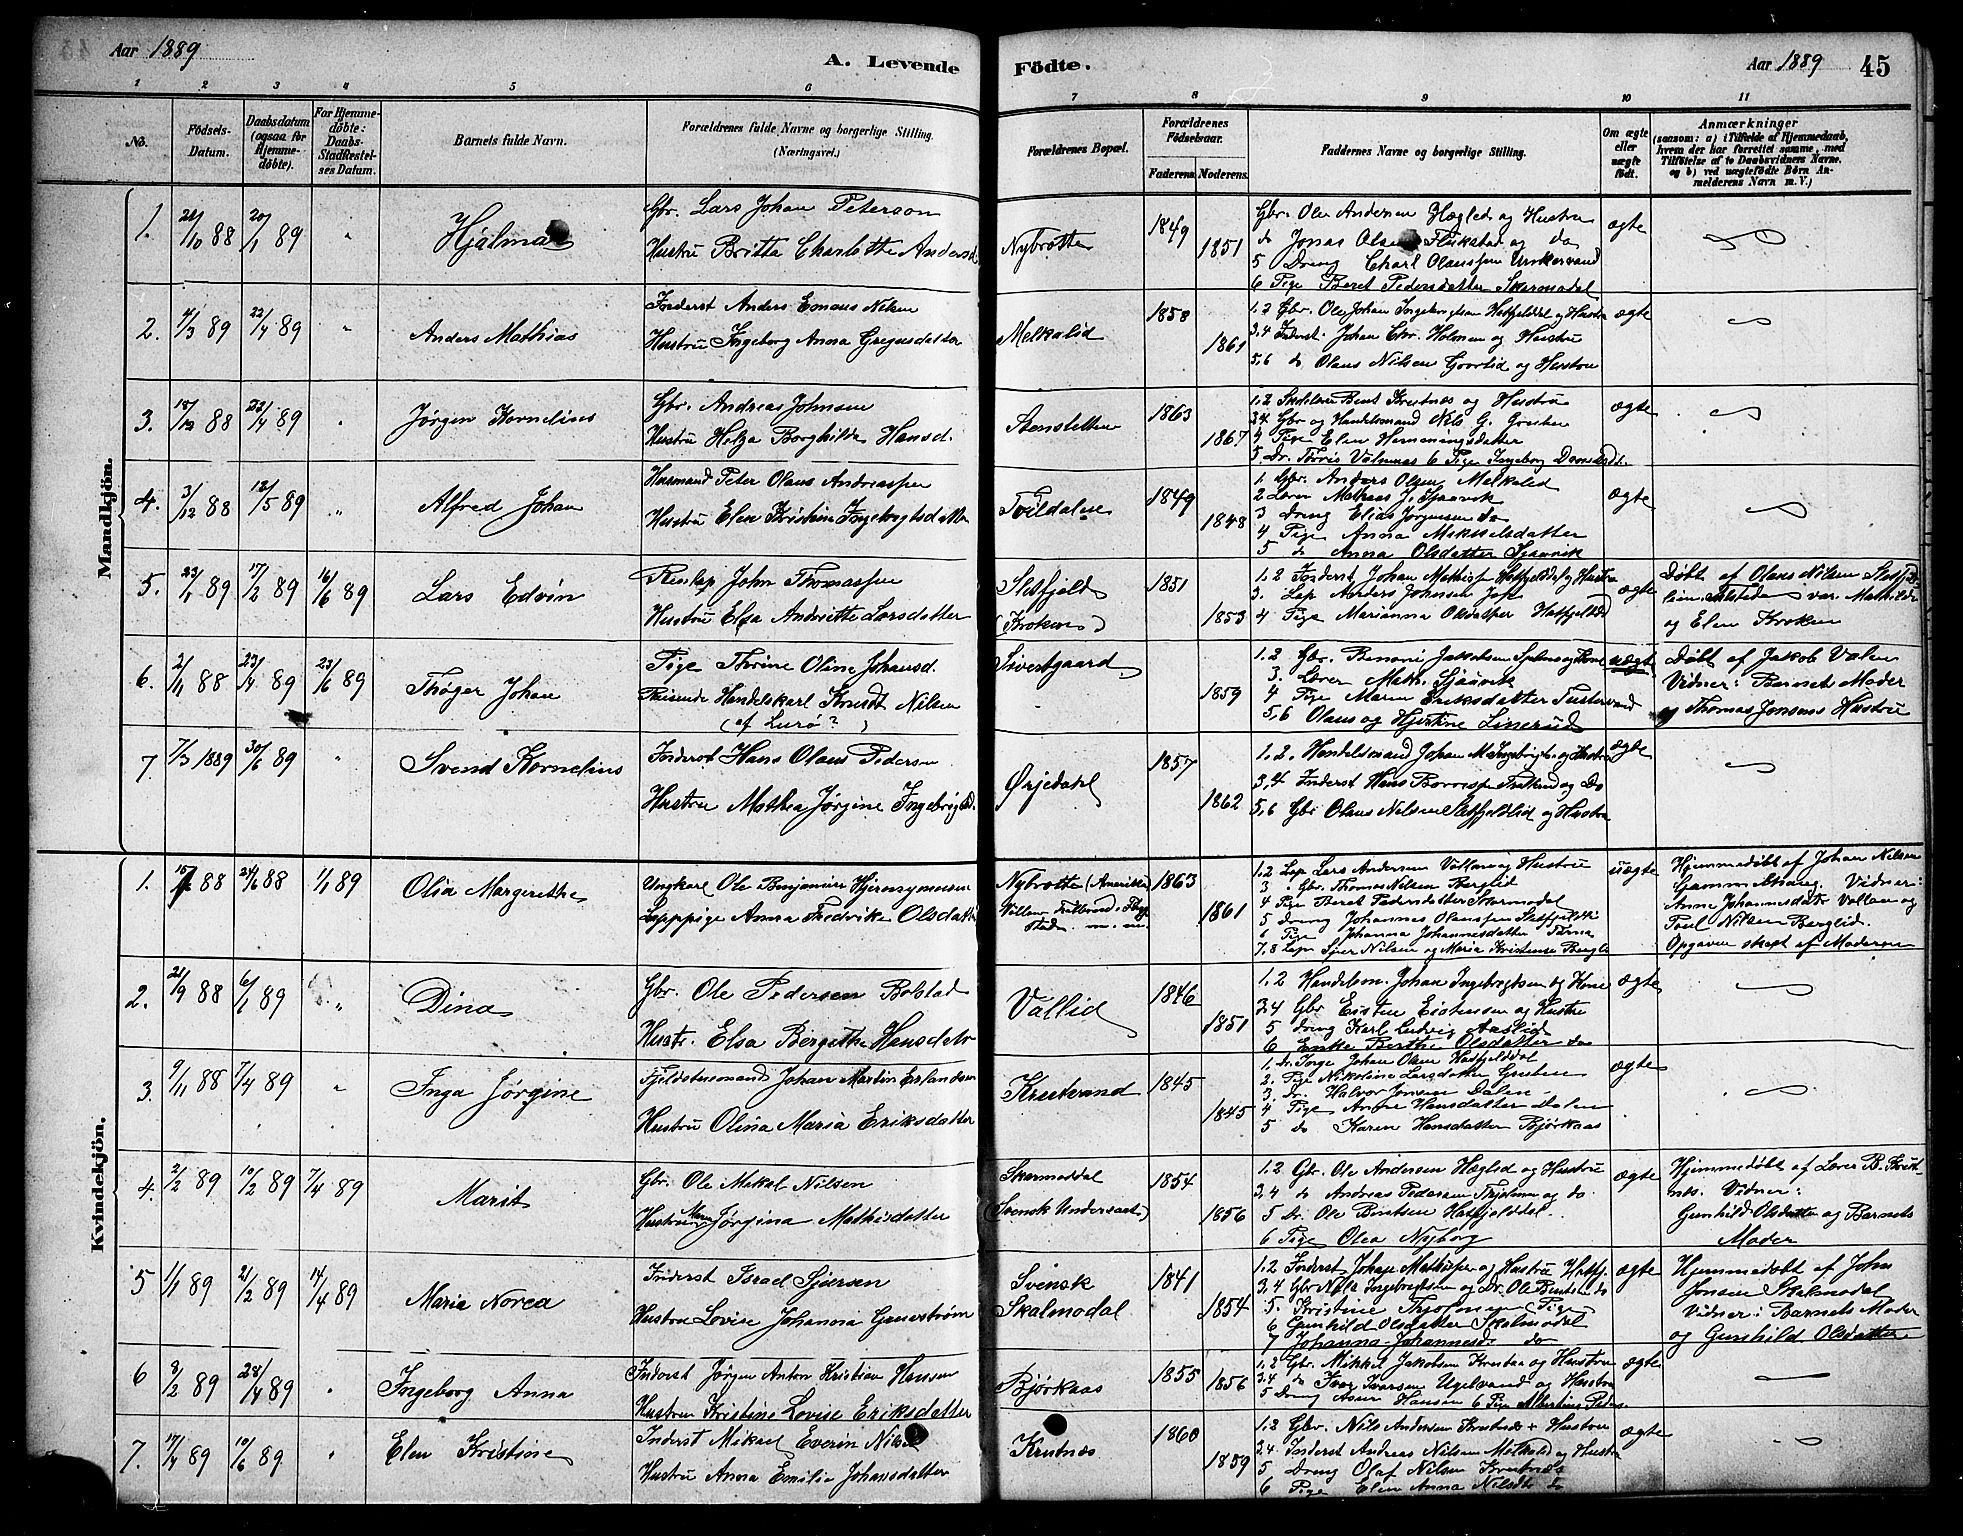 Aar 1889
A. Levende Födte.
Aar 1889 45
1 2 3 4 5 6 7 8 9 10 11
No.
Födsels-Datum.
Daabsdatum (ogsaa for Hjemmedöbte).
For Hjemmedöbte: Daabs-Stadfæstelses Datum.
Barnets fulde Navn.
Forældrenes fulde Navne og borgerlige Stilling. (Næringsvei.)
Forældrenes Bopæl.
Forældrenes Födselsaar.
Faderens. Moderens.
Faddernes Navne og borgerlige Stilling.
Om ægte eller uægte födt.
Anmærkninger
(saasom: a) i Tilfælde af Hjemmedaab, hvem der har forrettet samme, med Tilföielse af to Daabsvidners Navne, og b) ved uægtefödte Börn Anmelderens Navn m. V.)
Mandkjön.
1. 21/10 88 20/1 89 " Hjalmar
Gbr. Lars Johan Peterson
Hustru Britta Charlotte Andersd
Nybrotten 1849 1851
Gbr. Ole Andersen Hægled og Hustru
do Jonas Olsen Flikstad og do
5 Dreng Charl Olaussen Unkervand
6 Pige Beret Pedersdatter Skarmodal
ægte
2. 4/3 89 22/4 89 " Anders Mathias
Inderst Anders Emaus Nilsen
Hustru Ingeborg Anna Gregusdatter
Melkalid 1858 1861
1.2 Gbr. Ole Johan Ingebrigtsen Hatfjelddal og Hustru
3.4 Inderst. Johan Chr. Holmen og Hustru
5,6 do Olaus Nilsen Govrlid og Hustru
ægte
3. 18/12 88 22/4 89 " Jørgen Kornelius
Gbr. Andreas Johnsen
Hustru Helga Borghilde Hansd.
Stensletten 1863 1867
1.2 Skolelærer Bent Krutnæs og Hustru
3.4 Gbr og Handelsmand Nils G. Gruben
4 Pige Elen Hemmingsdatter
5. Dr. Torris Valmnæs 6 Pige Ingeborg
ægte
4. 3/12 88 12/5 89 " Alfred Johan
Husmand Peter Olaus Andreassen
Hustru Elen Kristine Ingebrigtsdatter
1849 1848
1. Gbr. Anders Olsen Melkalid
2 Lærer Mathias J. Sjaavik
3 Dreng Elias Jørgensen do
4 Pige Anna Mikkelsdatter
5 do Anna Olsdatter Sjaavik
ægte
5. 23/1 89 17/2 89 16/6 89 Lars Edvin
Renlap John Thomassen
Hustru Elsa Andriette Larsdatter
Slesfjeld (Kroken) 1851 1853
1,2 Inderst Johan Mathisf Hatfjelddal og Hustru
3. Lap Anders Johnsen
4 Pige Marianna Hatfjelddal
ægte
Døbt af Olaus Nilsen
var Mathilde
og Elen Kroken
6. 2/11 88 23/4 89 23/6 89 Thøger Johan
Pige Thrine Oline Johansd.
Handelskarl Knudt Nilsen
(af Lurø?)
Sivertgaard 1859
1.2 Gbr. Benoni Jakobsen og Kone
3. Lærer Math. Sjaavik
4 Pige Maren Eriksdatter Tustervand
5,6 Olaus og Hjertine Linerud
uægte
Døbt af Jakob Valen
Vidner: Barnets Moder
og Thomas Jonsens Hustru
7. 7/3 1889 30/6 89 " Svend Kornelius
Inderst Hans Olaus Pedersen
Hustru Mathea Jørgine Ingebrigtsd.
Ørjedahl 1857 1862
1.2. Handelsmand Johan M. Ingebrigts. og Hustru
3,4 Inderst Hans og Do
5,6 Gbr Olaus Nilsen Slesfjeldlid og Hustru
ægte
Kvindekjön.
1. 88 24/6 88 1/1 89 Olia Margrethe
Ungkarl Ole Benjamin Hjeronymussen
Lappige Anna Fredrike Olsdatter
Nybrotten (Amerika) 1863 1861
1.2 Lap Lars Andersen Vallan og Hustru
3. Gbr. Thomas Nilsen Berglid
4 Pige Beret Pedersdatter Skarmodal
5 Dreng Johannes Olaussen
6 Pige Johanna Johannesdatter Tärna
7,8 Lap Sjur Nilsen og Maria Kristensen
uægte
Hjemmedøbt af Johan Nilsen
Vidner:
Anne Johannesdatr Vallan og
Poul Nilsen Berglid.
Opgaven skeet af Moderen
2. 21/9 88 6/1 89 " Dina
Gbr. Ole Pedersen Bolstad
Hustr. Elsa Bergethe Hansdatr
Vallid 1846 1851
1.2 Handelsm. Johan Ingebrigtsen og Kone
3,4 Gbr Eisten Eistensen og Hustru
5 Dreng Karl Ludvig Aaslid
6 Enke Berthe Olsdatter do
ægte
3. 9/11 88 7/4 89 " Inga Jørgine
Fjeldstuemand Johan Martin Erlandsen
Hustru Olina Maria Eriksdatter
Krutvand 1845 1845
1. Dr. Johan Olsen Hatfjelddal
2. Pige Nikoline Larsdatter Gruben
3. Dr. Halvor Jonsen Dalen
4 Pige Anne Hansdatter Dalen
5 do Karen Hansdatter Bjørkaas
ægte
4. 2/2 89 10/2 89 7/4 89 Marit
Gbr. Ole Mikal Nilsen
Hustru Maria Jørgina Mathisdatter
Skarmodal (Svensk Undersaat) 1854 1856
1.2 Gbr. Ole Andersen Hægled og Hustru
3,4 do Andreas Pedersen Thjolmen og do
5 Dr. Ole Bentsen Hatfjelddal.
6 Pige Olea Nyborg
ægte
Hjemmedøbt af Lærer B. Krutnæs. Vidner:
Gunhild Olsdatter og Barnets
Moder
5 1/1 89 21/2 89 14/4 89 Maria Norea
Inderst Israel Sjulsen
Hustru Lovise Johanna
Svensk Skalmodal 1841 1854
1.2 Inderst Johan Mathisen og Hustru Hatfj.
3,4 Gbr Nils Ingebrigtsen og Dr. Ole Bentsen do
5. Kristine Thjolmen (Pige)
6 Gunhild Olsdatter Skalmodal
7 Johanna Johannesd. do
ægte
Hjemmedøbt af John
Jonsen Skalmodal
Vidner: Barnets Moder
og Gunhild Olsdatter
6 8/2 89 28/4 89 " Ingeborg Anna
Inderst Jørgen Anton Kristian Hansen
Hustru Kristine Lovise Eriksdatter
Bjørkaas 1855 1856
1,2 Gbr. Mikkel Jakobsen Krutaa og Hustru
3.4 do Ivar Ivarsen Ugelvand og Hustru
5 Dreng Hansen 6 Pige Albertine
ægte
7. 17/4 89 10/6 89 " Elen Kristine
Inderst Mikael Everin Nilsen
Hustru Anna Emilie Johansdatter
Krutnæs 1860 1859
1.2 Gbr. Nils Andersen Krutnæs + Hustru
3,4 Inderst Andreas Nilsen Melkalid og Hustru
5 Dreng Olaf Nilsen Krutnæs
6 Pige Elen Anna Nilsdtr do
ægte